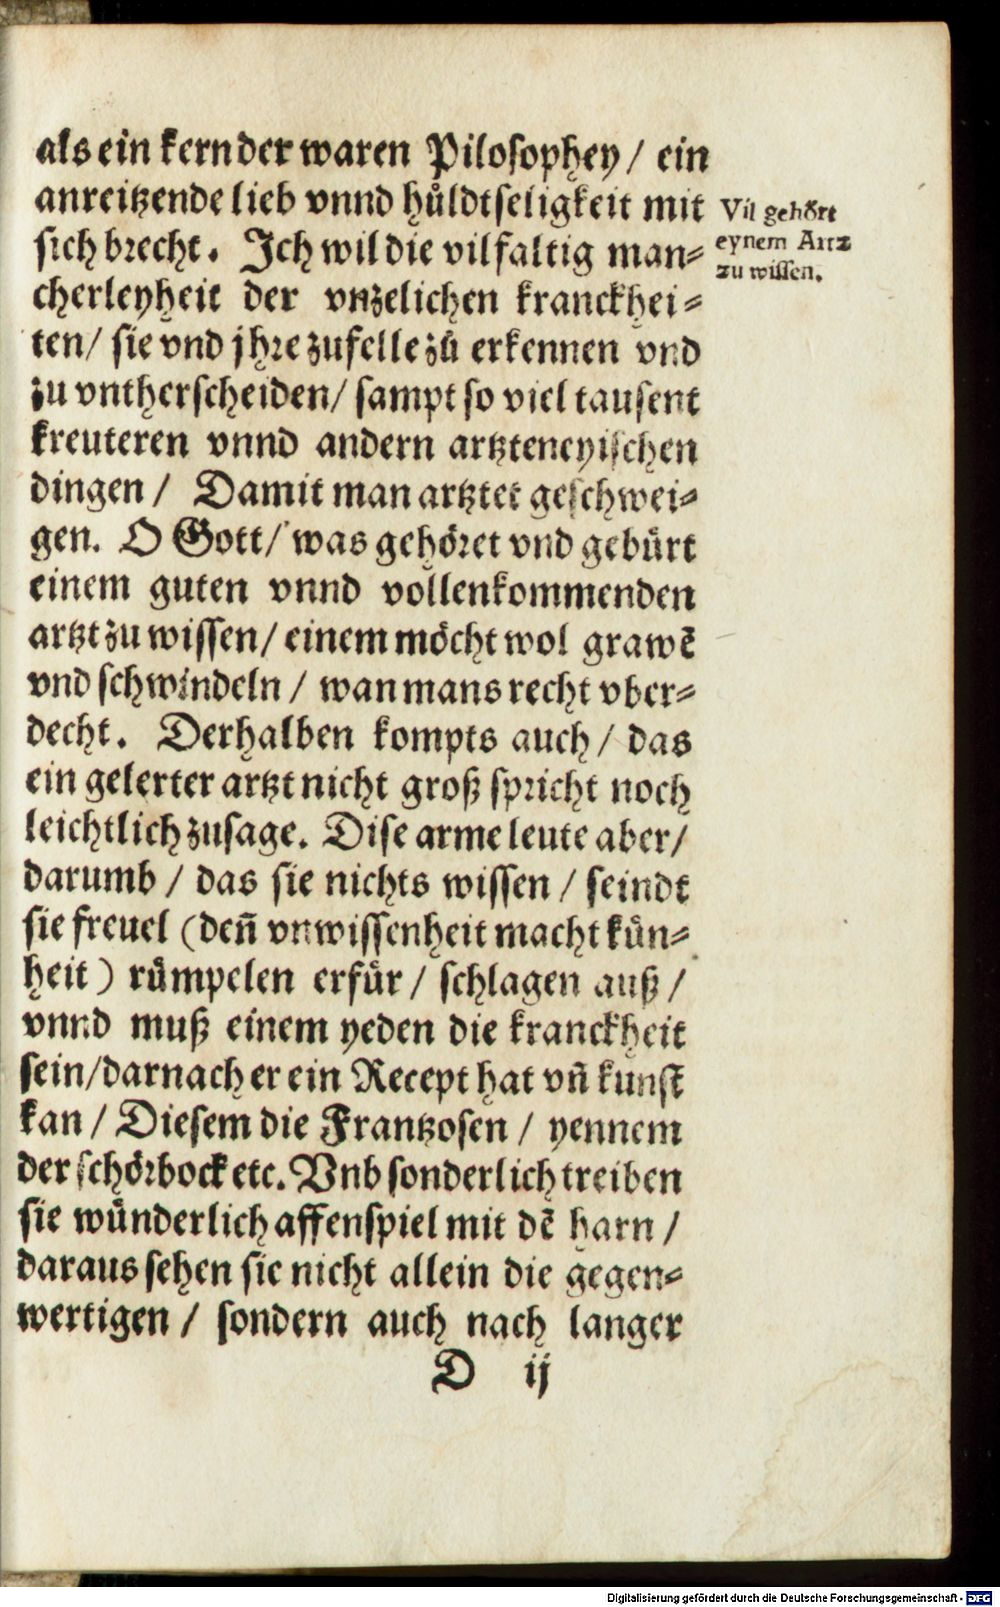 als ein kern der waren Pilosophey / ein
anreitzende lieb vnnd huͤldtseligkeit mit
sich brecht. Ich wil die vilfaltig man⸗
cherleyheit der vnzelichen kranckhei⸗
ten / sie vnd jhre zufelle zuͤ erkennen vnd
zu vntherscheiden / sampt so viel tausent
kreuteren vnnd andern artzteneyischen
dingen / Damit man artztet geschwei⸗
gen. O Gott / was gehoͤret vnd gebuͤrt
einem guten vnnd vollenkommenden
artzt zu wissen / einem moͤcht wol grawē
vnd schwindeln / wan mans recht vber⸗
decht. Derhalben kompts auch / das
ein gelerter artzt nicht groß spricht noch
leichtlich zusage. Dise arme leute aber /
darumb / das sie nichts wissen / seindt
sie freuel (den̄ vnwissenheit macht kuͤn⸗
heit) ruͤmpelen erfuͤr / schlagen auß /
vnnd muß einem yeden die kranckheit
sein / darnach er ein Recept hat vn̄ kunst
kan / Diesem die Frantzosen / yennem
der schoͤrbock etc. Vnb sonderlich treiben
sie wuͤnderlich affenspiel mit dē harn /
daraus sehen sie nicht allein die gegen⸗
wertigen / sondern auch nach langer
D ij
Vil gehoͤrt
eynem Artz
zu wissen.
Digitalisierung gefördert durch die Deutsche Forschungsgemeinschaft - DFG